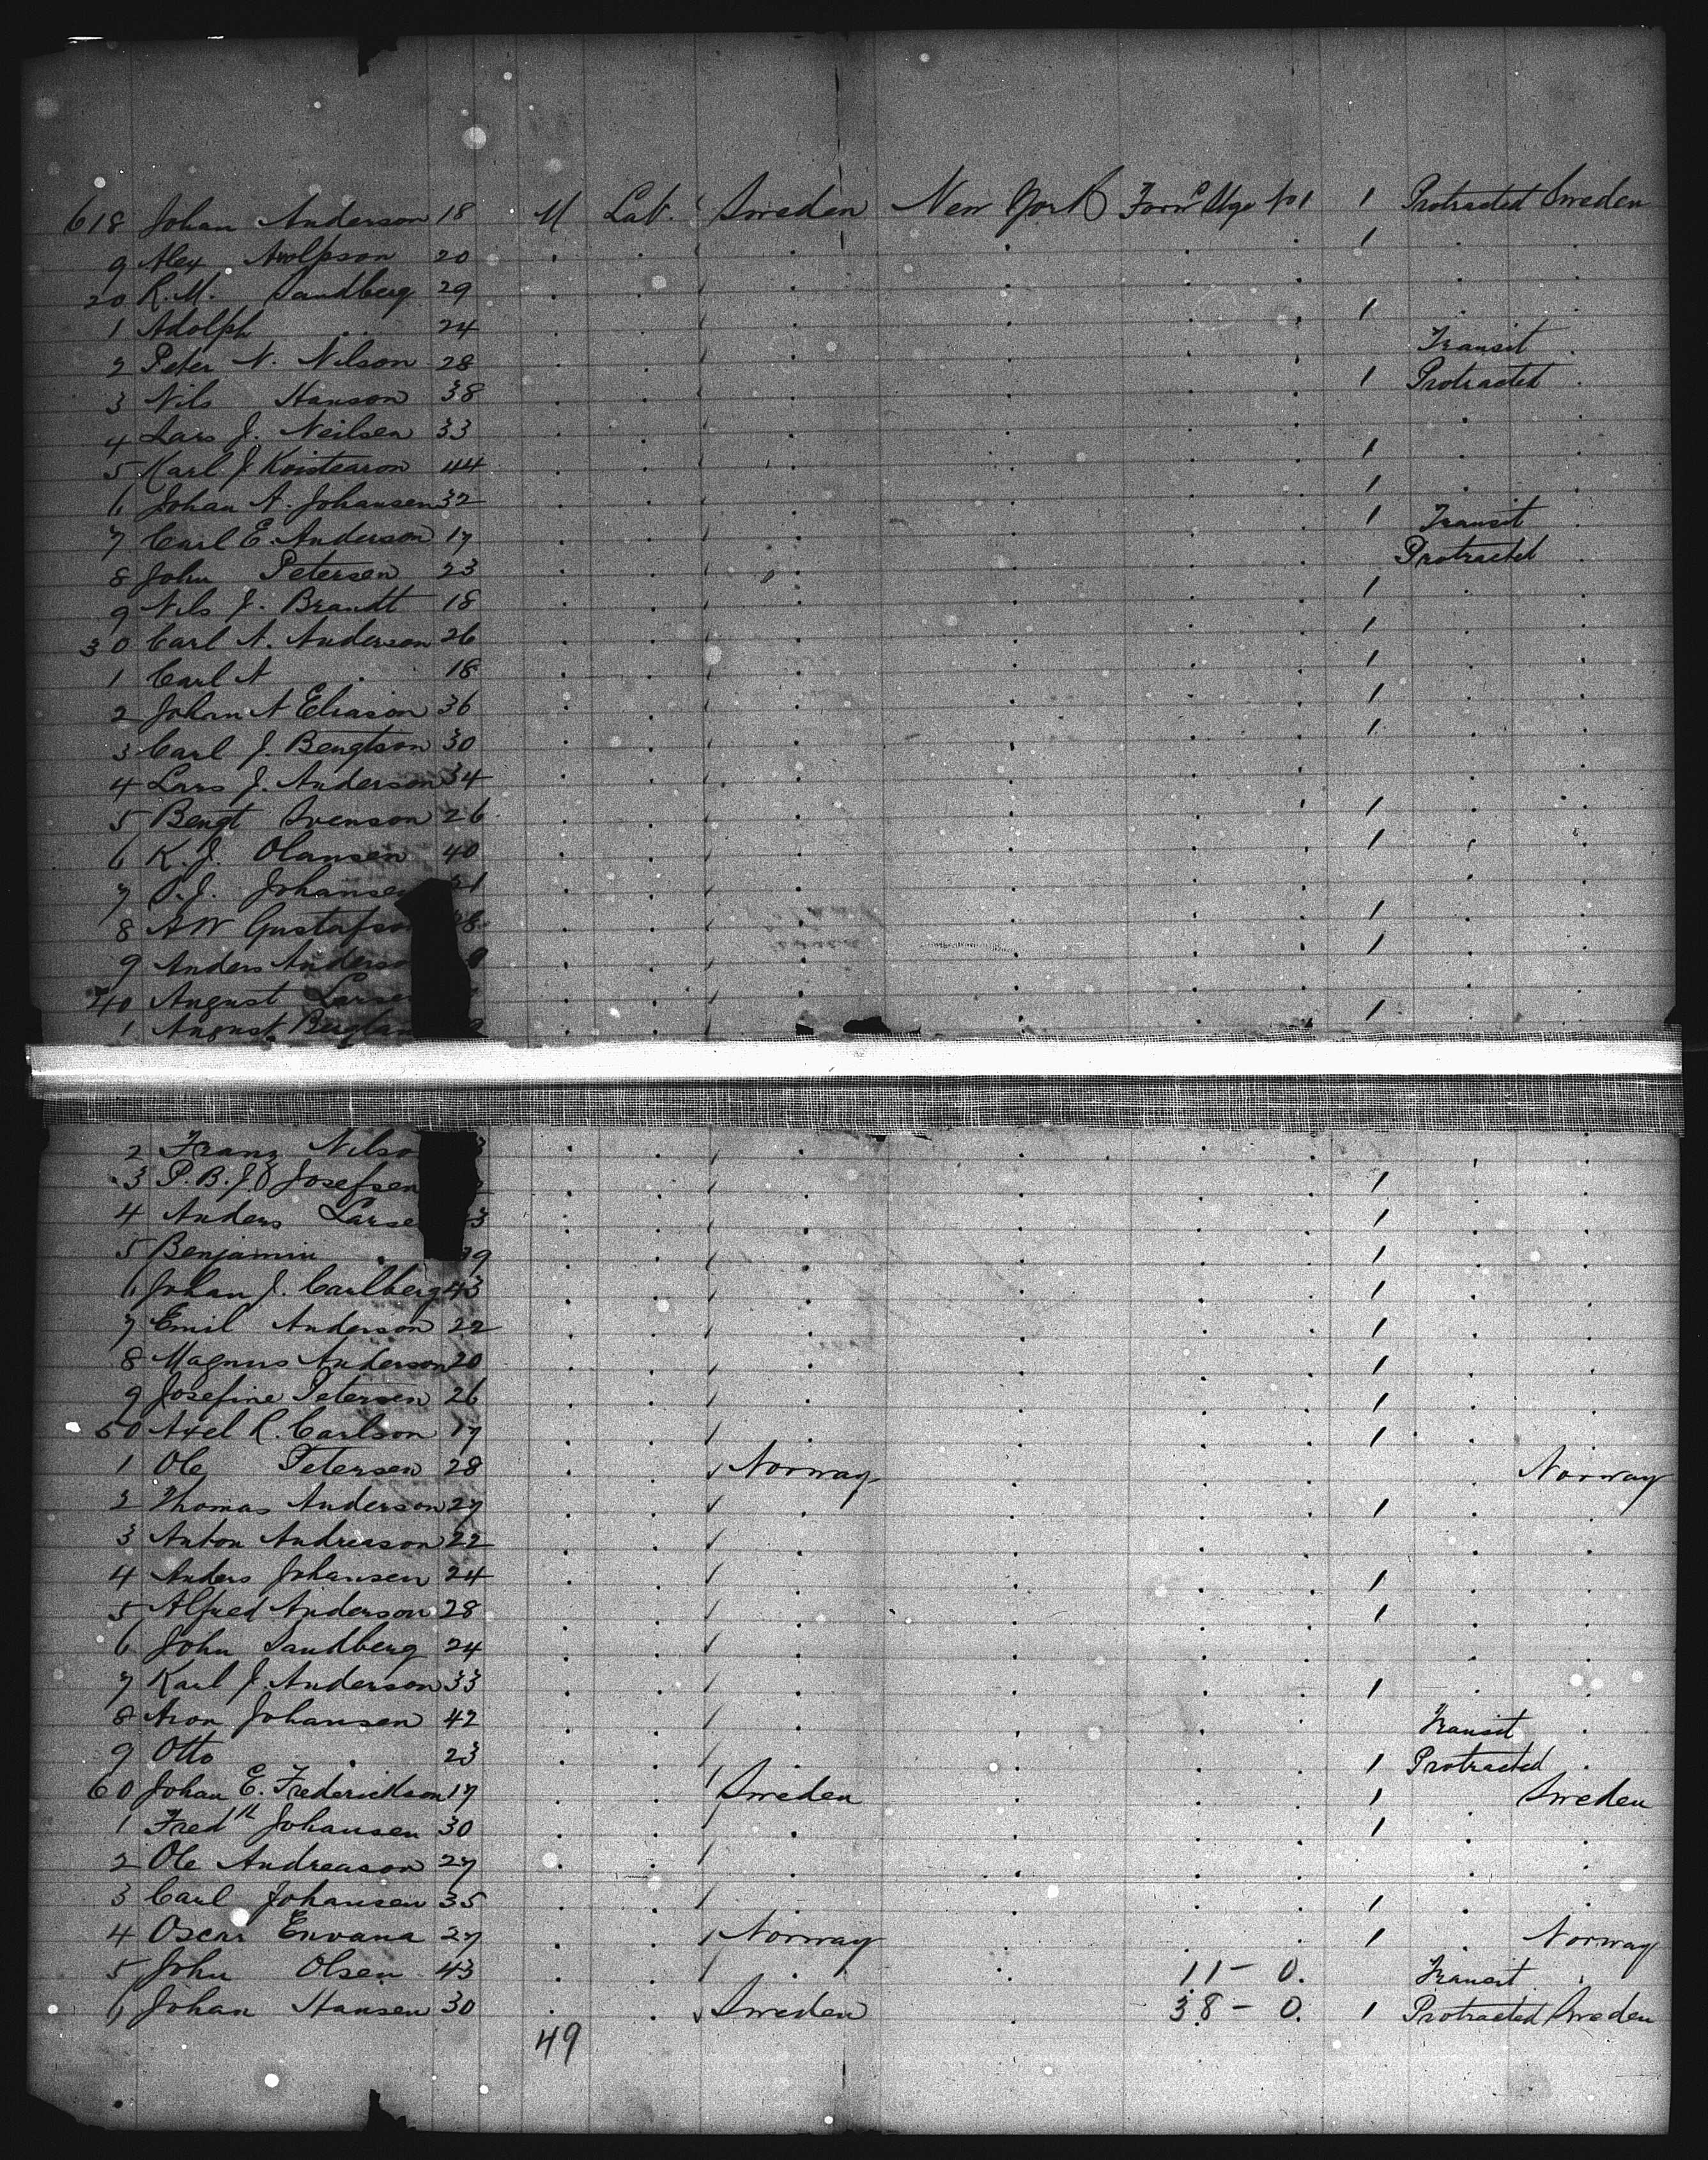 618 Johan Anderson 18 M Lab. Sweden New York Forwd Upr No 1 1 Protracted Sweden
9 Alex 20 . . . . . . 1 . .
20 R.M. Sandberg 29
1 Adolph . . 24 1
2 Peter N. Nilson 28 Transit
3 Nils Hanson 38 1 Protracted
4 Lars J. Neilsen 33
5 Karl J 44 1
6 Johan A. Johansen 32 1
7 Carl E. Anderson 17 1 Transit
8 John Petersen 23 Protracted
9 Nils J. Brandt 18 1
30 Carl A. Anderson 26 1
1 Carl A . 18 1
2 Johan A Eliason 36 1
3 Carl J. Bengtson 30 1
4 Lars J. Anderson 34
5 Bengt Svenson 26 1
6 K. J. Olansen 40 1
7 P. J. Johanse
8 AW Gustafso 1
9 Anders Anderso 1
40 August Larse
1 August 1
2 Franz Nilso
3 P. B. J. Josefsen 1
4 Anders Larse 3 1
5 Benjamin . 9 1
6 Johan J. Carlberg 43 1
7 Emil Anderson 22 1
8 Magnus Anderson 20 1
9 Josefine Petersen 26 1
50 Axel R. Carlson 17 1
1 Ole Petersen 28 Norway Norway
2 Thomas Anderson 27 1
3 Anton Andreason 22
4 Anders Johansen 24 1
5 Alfred Anderson 28 1
6 John Sandberg 24
7 Karl J. Anderson 33 1
8 Aron Johansen 42 Transit
9 Otto . 23 1 Protracted
60 Johan E. Frederickson 17 Sweden 1 Sweden
1 Fredk Johansen 30 1
2 Ole Andreason 27
3 Carl Johansen 35 1
4 Oscar Envana 27 Norway 1 Norway
5 John Olsen 43 11 - 0. Transit
6 Johan Hansen 30 Sweden 38 - 0. 1 Protracted Sweden
49